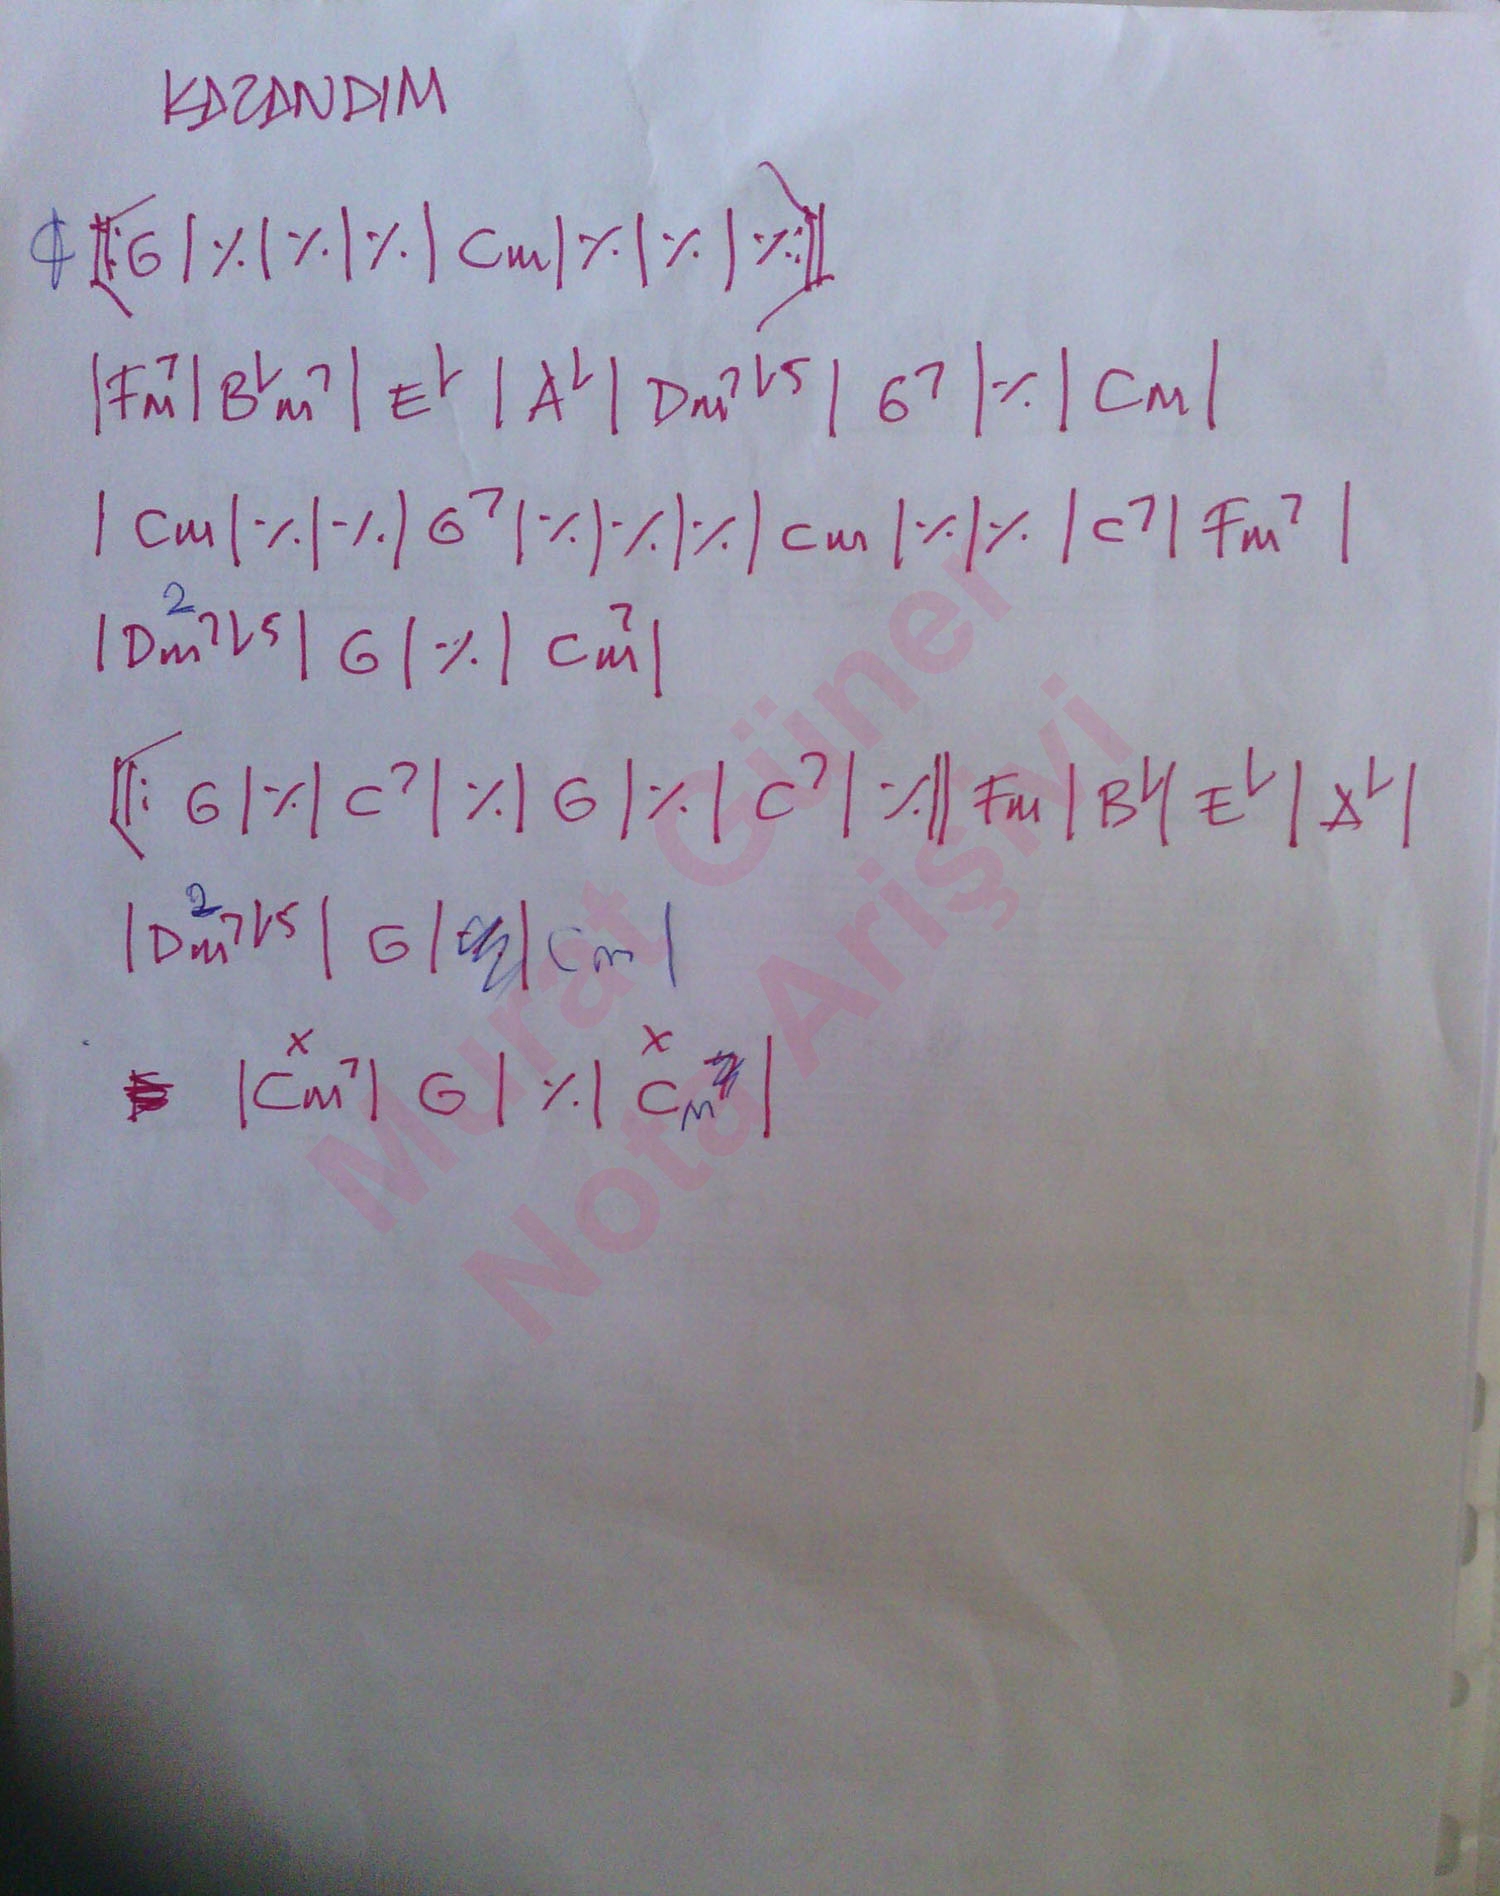 KAZANDIM
¢ ‖: G | ٪ | ٪ | ٪ | Cm | ٪ | ٪ | ٪ :‖
| Fm7 | B♭m7 | E♭ | A♭ | Dm7♭5 | G7 | ٪ | Cm |
| Cm | ٪ | ٪ | G7 | ٪ | ٪ | ٪ | Cm | ٪ | ٪ | C7 | Fm7 |
2
| Dm7♭5 | G | ٪ | Cm7 |
‖: G | ٪ | C7 | ٪ | G | ٪ | C7 | ٪ ‖ Fm | B♭ | E♭ | A♭ |
2
| Dm7♭5 | G | | Cm |
x x
| Cm7 | G | ٪ | Cm |
Murat Güner
Nota Arişivi